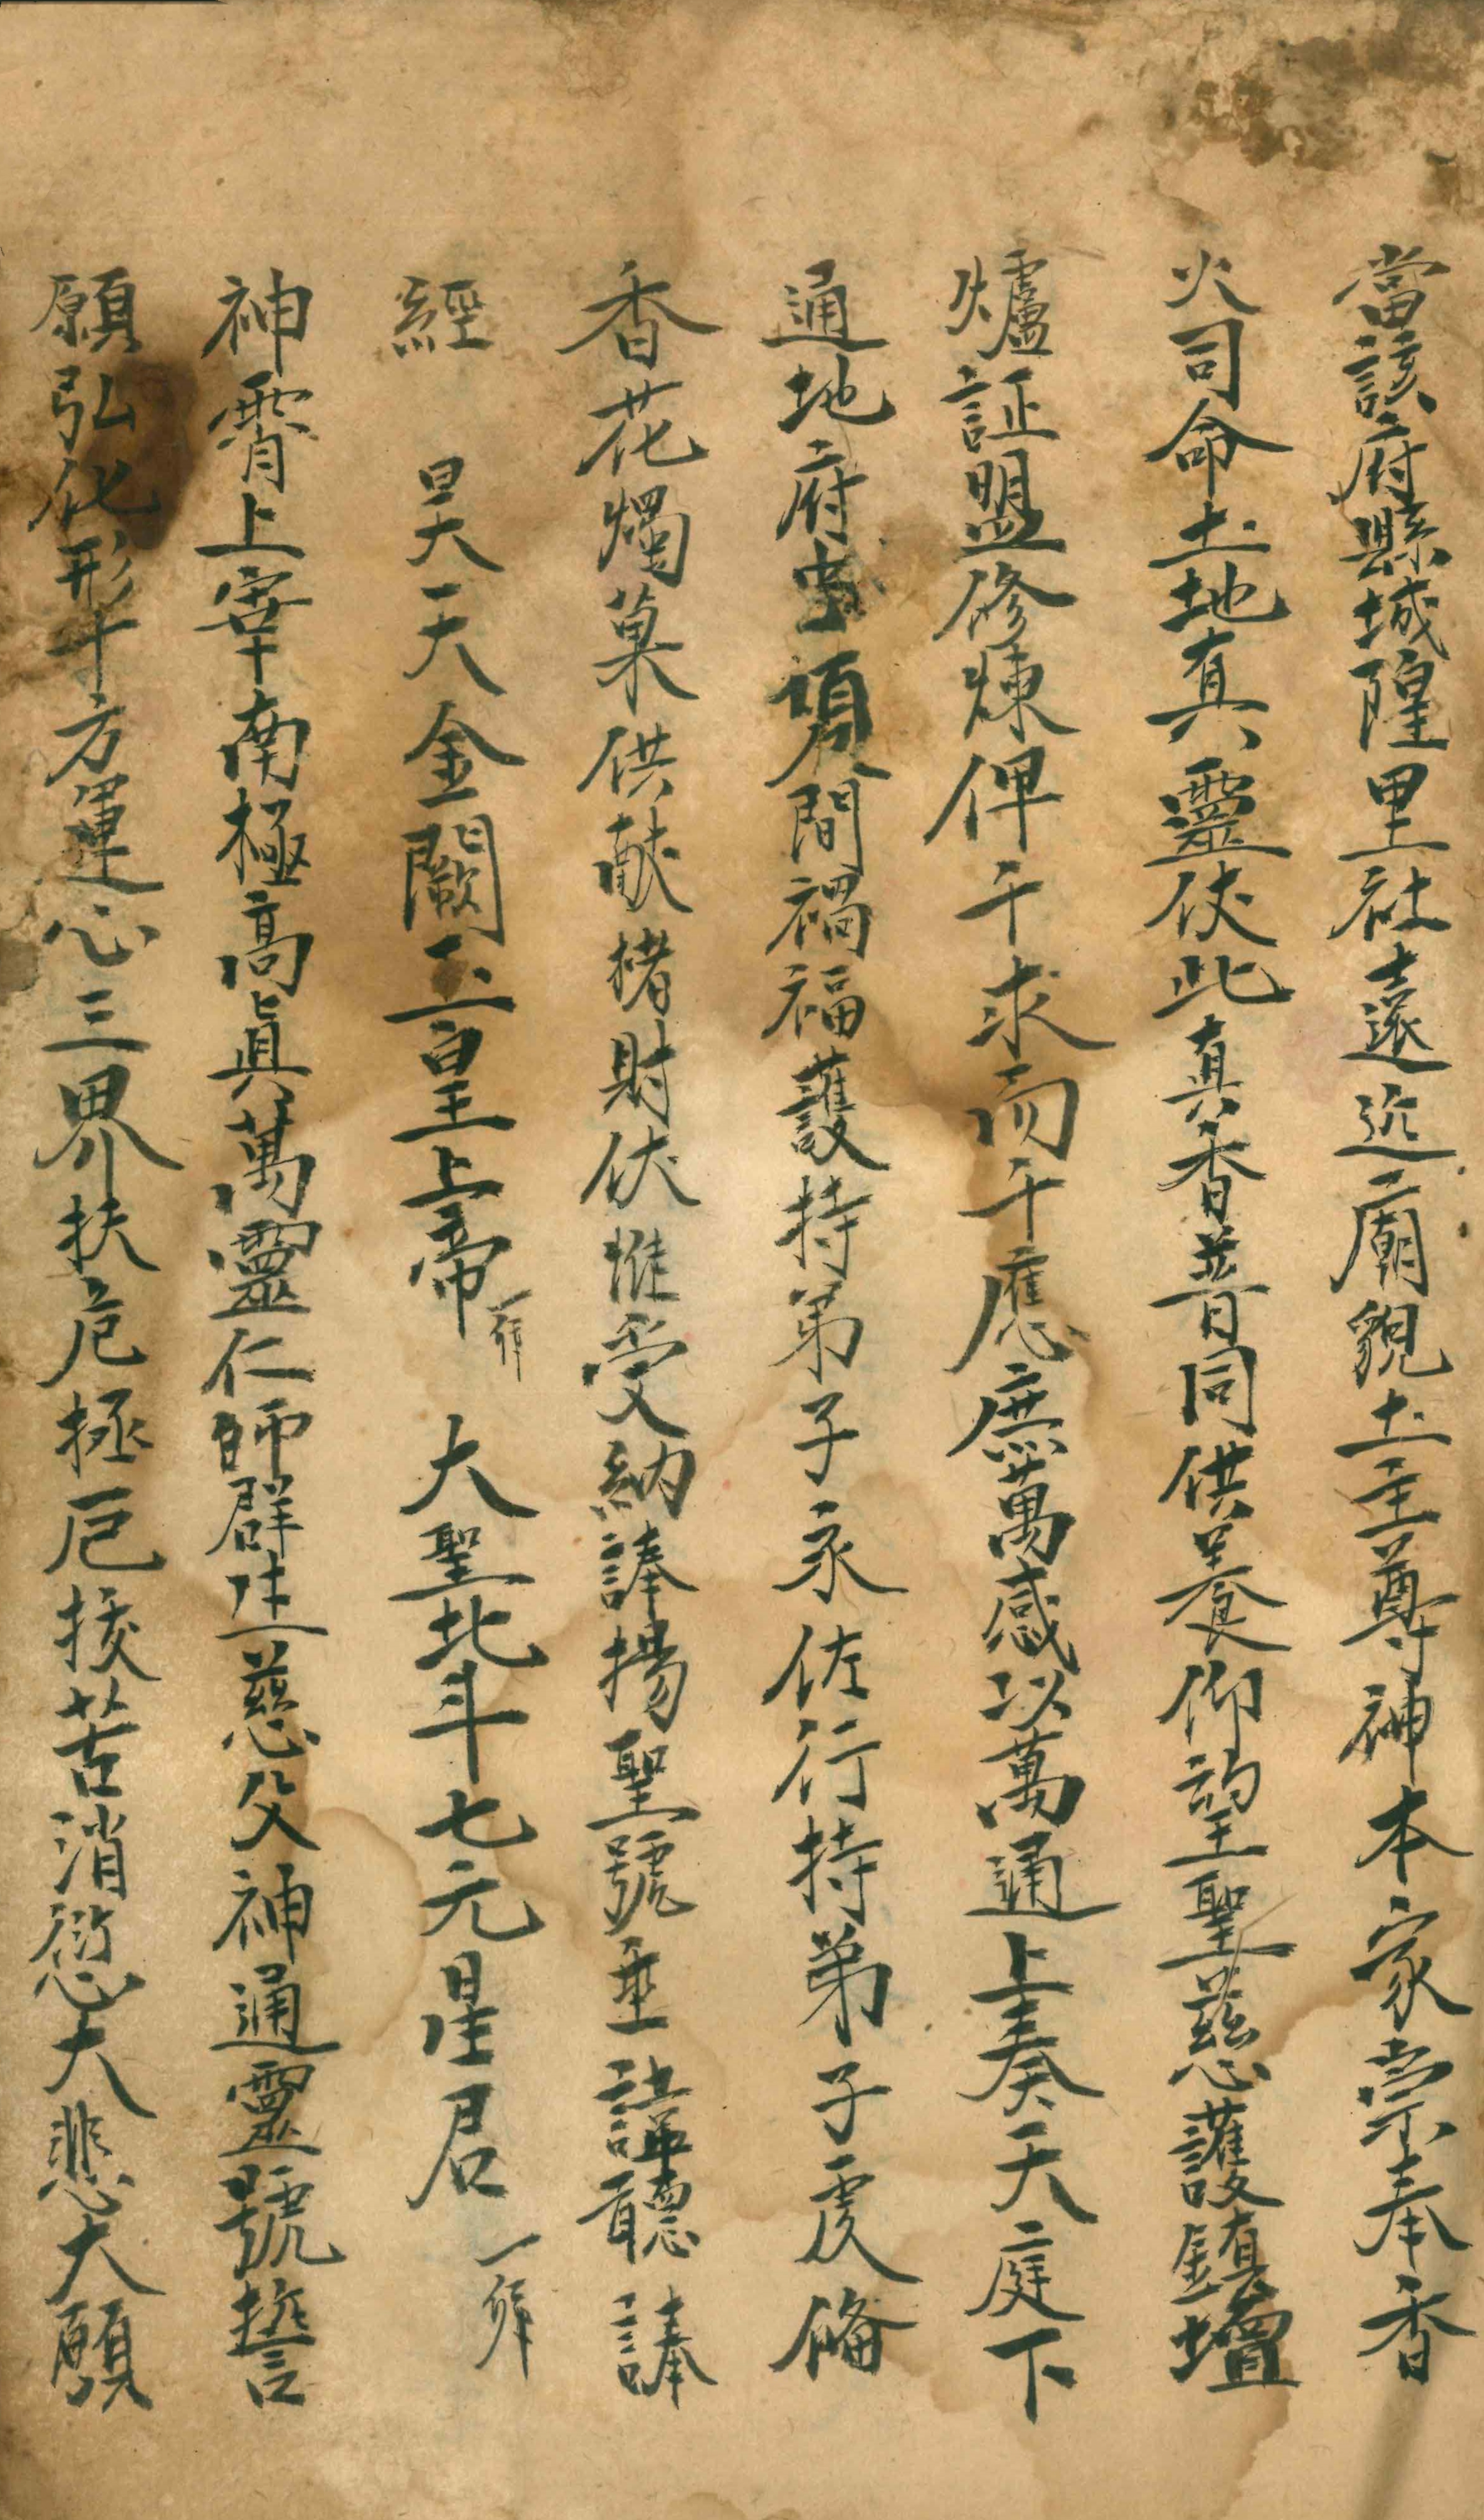 當該府縣城隍里社遠近廟貌土主尊神本家崇奉香
火司命土地真靈伏此真香普同供養仰望聖慈護鎮壇
爐証盟修煉俾千求而千應庶萬感以萬通上奏天庭下
通地府虫須臾間禍福護持弟子永佐行持弟子虔俻
香花燭菓供献楮財伏惟受納諱揚聖號垂諱聽諱
經 昊天金闕玉皇上帝一拜 大聖北斗七元星君一拜
神霄上宰南極高眞萬靈仁師群生慈父神通靈號誓
願弘化形十方運心三界扶危拯厄拔苦消愆大悲大願